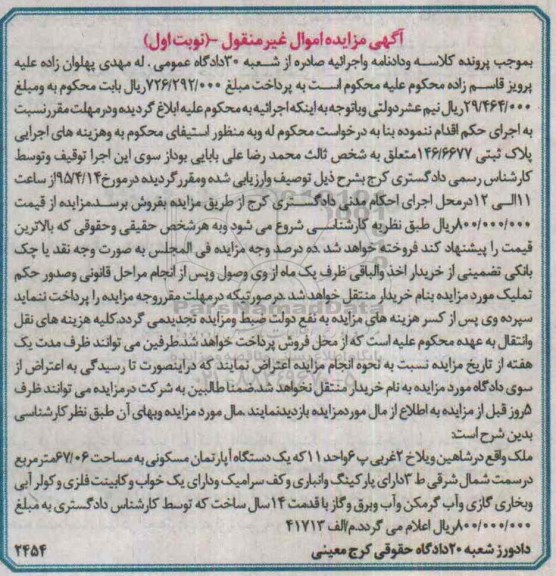 آگهی مزایده اموال غیر منقول -(نوبت اول)
بموجب پرونده کلاسه ودادنامه واجرائیه صادره از شعبه ۳۰دادگاه عمومی . له مهدی پهلوان زاده علیه
پرویز قاسم زاده محکوم علیه محکوم است به پرداخت مبلغ ۷۲۶/۲۹۲/۰۰۰ریال بابت محکوم به ومبلغ
۲۹/۴۶۴/۰۰۰ریال نیم عشر دولتی وباتوجه به اینکه اجرائیه به محکوم علیه ابلاغ گردیده ودرمهلت مقرر نسبت
به اجرای حکم اقدام ننموده بنا به درخواست محکوم له وبه منظور استیفای محکوم به وهزینه های اجرایی
پلاک ثبتی ۱۴۶/۶۶۷۷متعلق به شخص ثالث محمد رضا علی بابایی بوداز سوی این اجرا توقیف وتوسط
کارشناس رسمی دادگستری کرج بشرح ذیل توصیف وارزیابی شده ومقرر گردیده درمورخ۹۵/۴/۱۴از ساعت
۱۱الی ۱۲درمحل اجرای احکام مدنی دادگستری کرج از طریق مزایده بفروش برسد.مزایده از قیمت
۸۰۰/۰۰۰/۰۰۰ریال طبق نظریه کارشناسی شروع می شود وبه هرشخص حقیقی وحقوقی که بالاترین
قیمت را پیشنهاد کند فروخته خواهد شد .ده درصد وجه مزایده فی المجلس به صورت وجه نقد یا چک
بانکی تضمینی از خریدار اخذ والباقی ظرف یک ماه از وی وصول وپس از انجام مراحل قانونی وصدور حکم
تملیک مورد مزایده بنام خریدار منتقل خواهد شد .درصورتیکه درمهلت مقرروجه مزایده را پرداخت ننماید
سپرده وی پس از کسر هزینه های مزایده به نفع دولت ضبط ومزایده تجدیدمی گردد.کلیه هزینه های نقل
وانتقال به عهده محکوم علیه است که از محل فروش پرداخت خواهد شد.طرفین می توانند ظرف مدت یک
هفته از تاریخ مزایده نسبت به نحوه انجام مزایده اعتراض نمایند که دراینصورت تا رسیدگی به اعتراض از
سوی دادگاه مورد مزایده به نام خریدار منتقل نخواهد شد.ضمنا طالبین به شرکت درمزایده می توانند ظرف
۵روز قبل از مزایده به اطلاع از مال موردمزایده بازدیدنمایند .مال مورد مزایده وبهای آن طبق نظر کارشناسی
بدین شرح است:
ملک واقع درشاهین ویلاخ ۲غربی پ ۶واحد ۱۱که یک دستگاه آپارتمان مسکونی به مساحت ۶۷/۰۶مترمربع
درسمت شمال شرقی ط ۳دارای پارکینگ وانباری و کف سرامیک ودارای یک خواب و کابینت فلزی و کولر آبی
وبخاری گازی وآب گرمکن وآب وبرق وگاز با قدمت ۱۴سال ساخت که توسط کارشناس دادگستری به مبلغ
۸۰۰/۰۰۰/۰۰۰ریال اعلام می گردد.م/الف ۴۱۷۱۳
دادورز شعبه ۲۰دادگاه حقوقی کرج معینی
۲۴۵۴